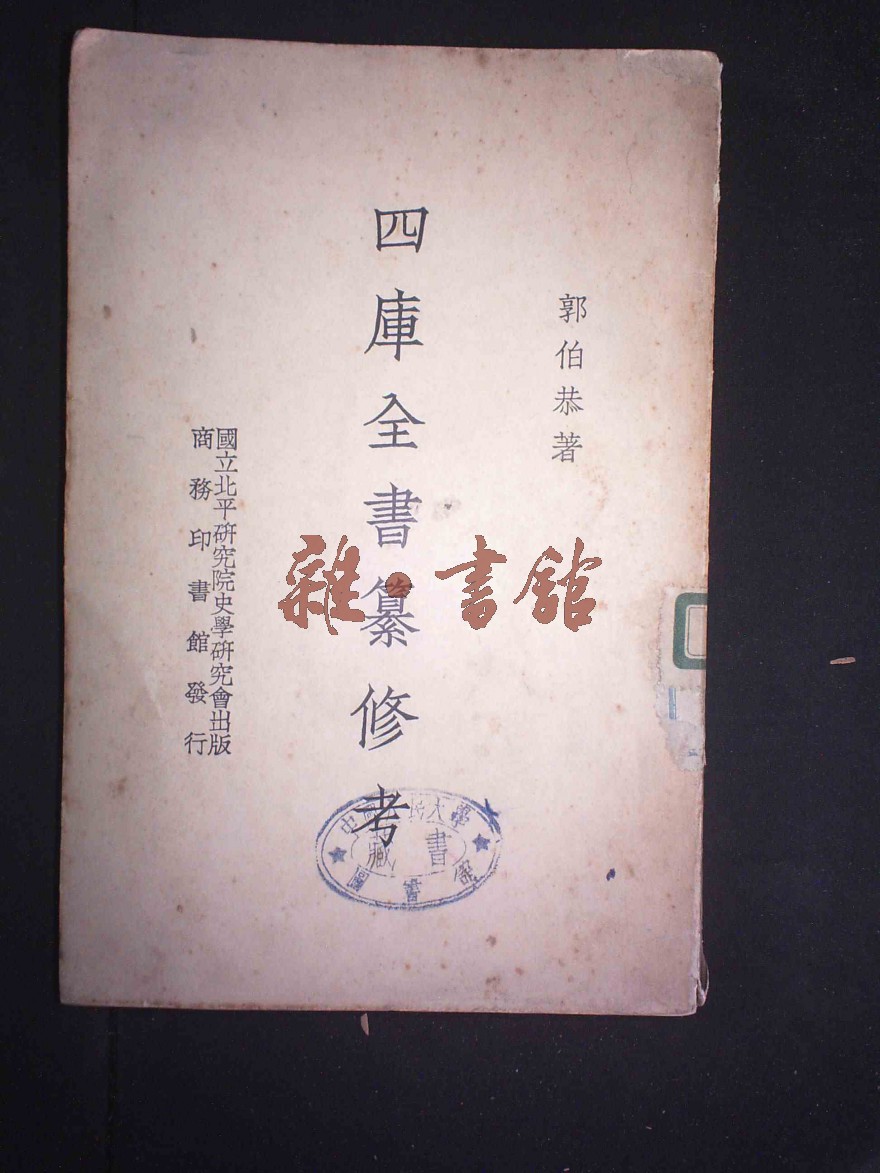 郭伯恭著
四庫全書纂修考
國立北平研究院史學研究會出版
商務印書館發行
雜·書館
中國人民大學
藏書
圖書館